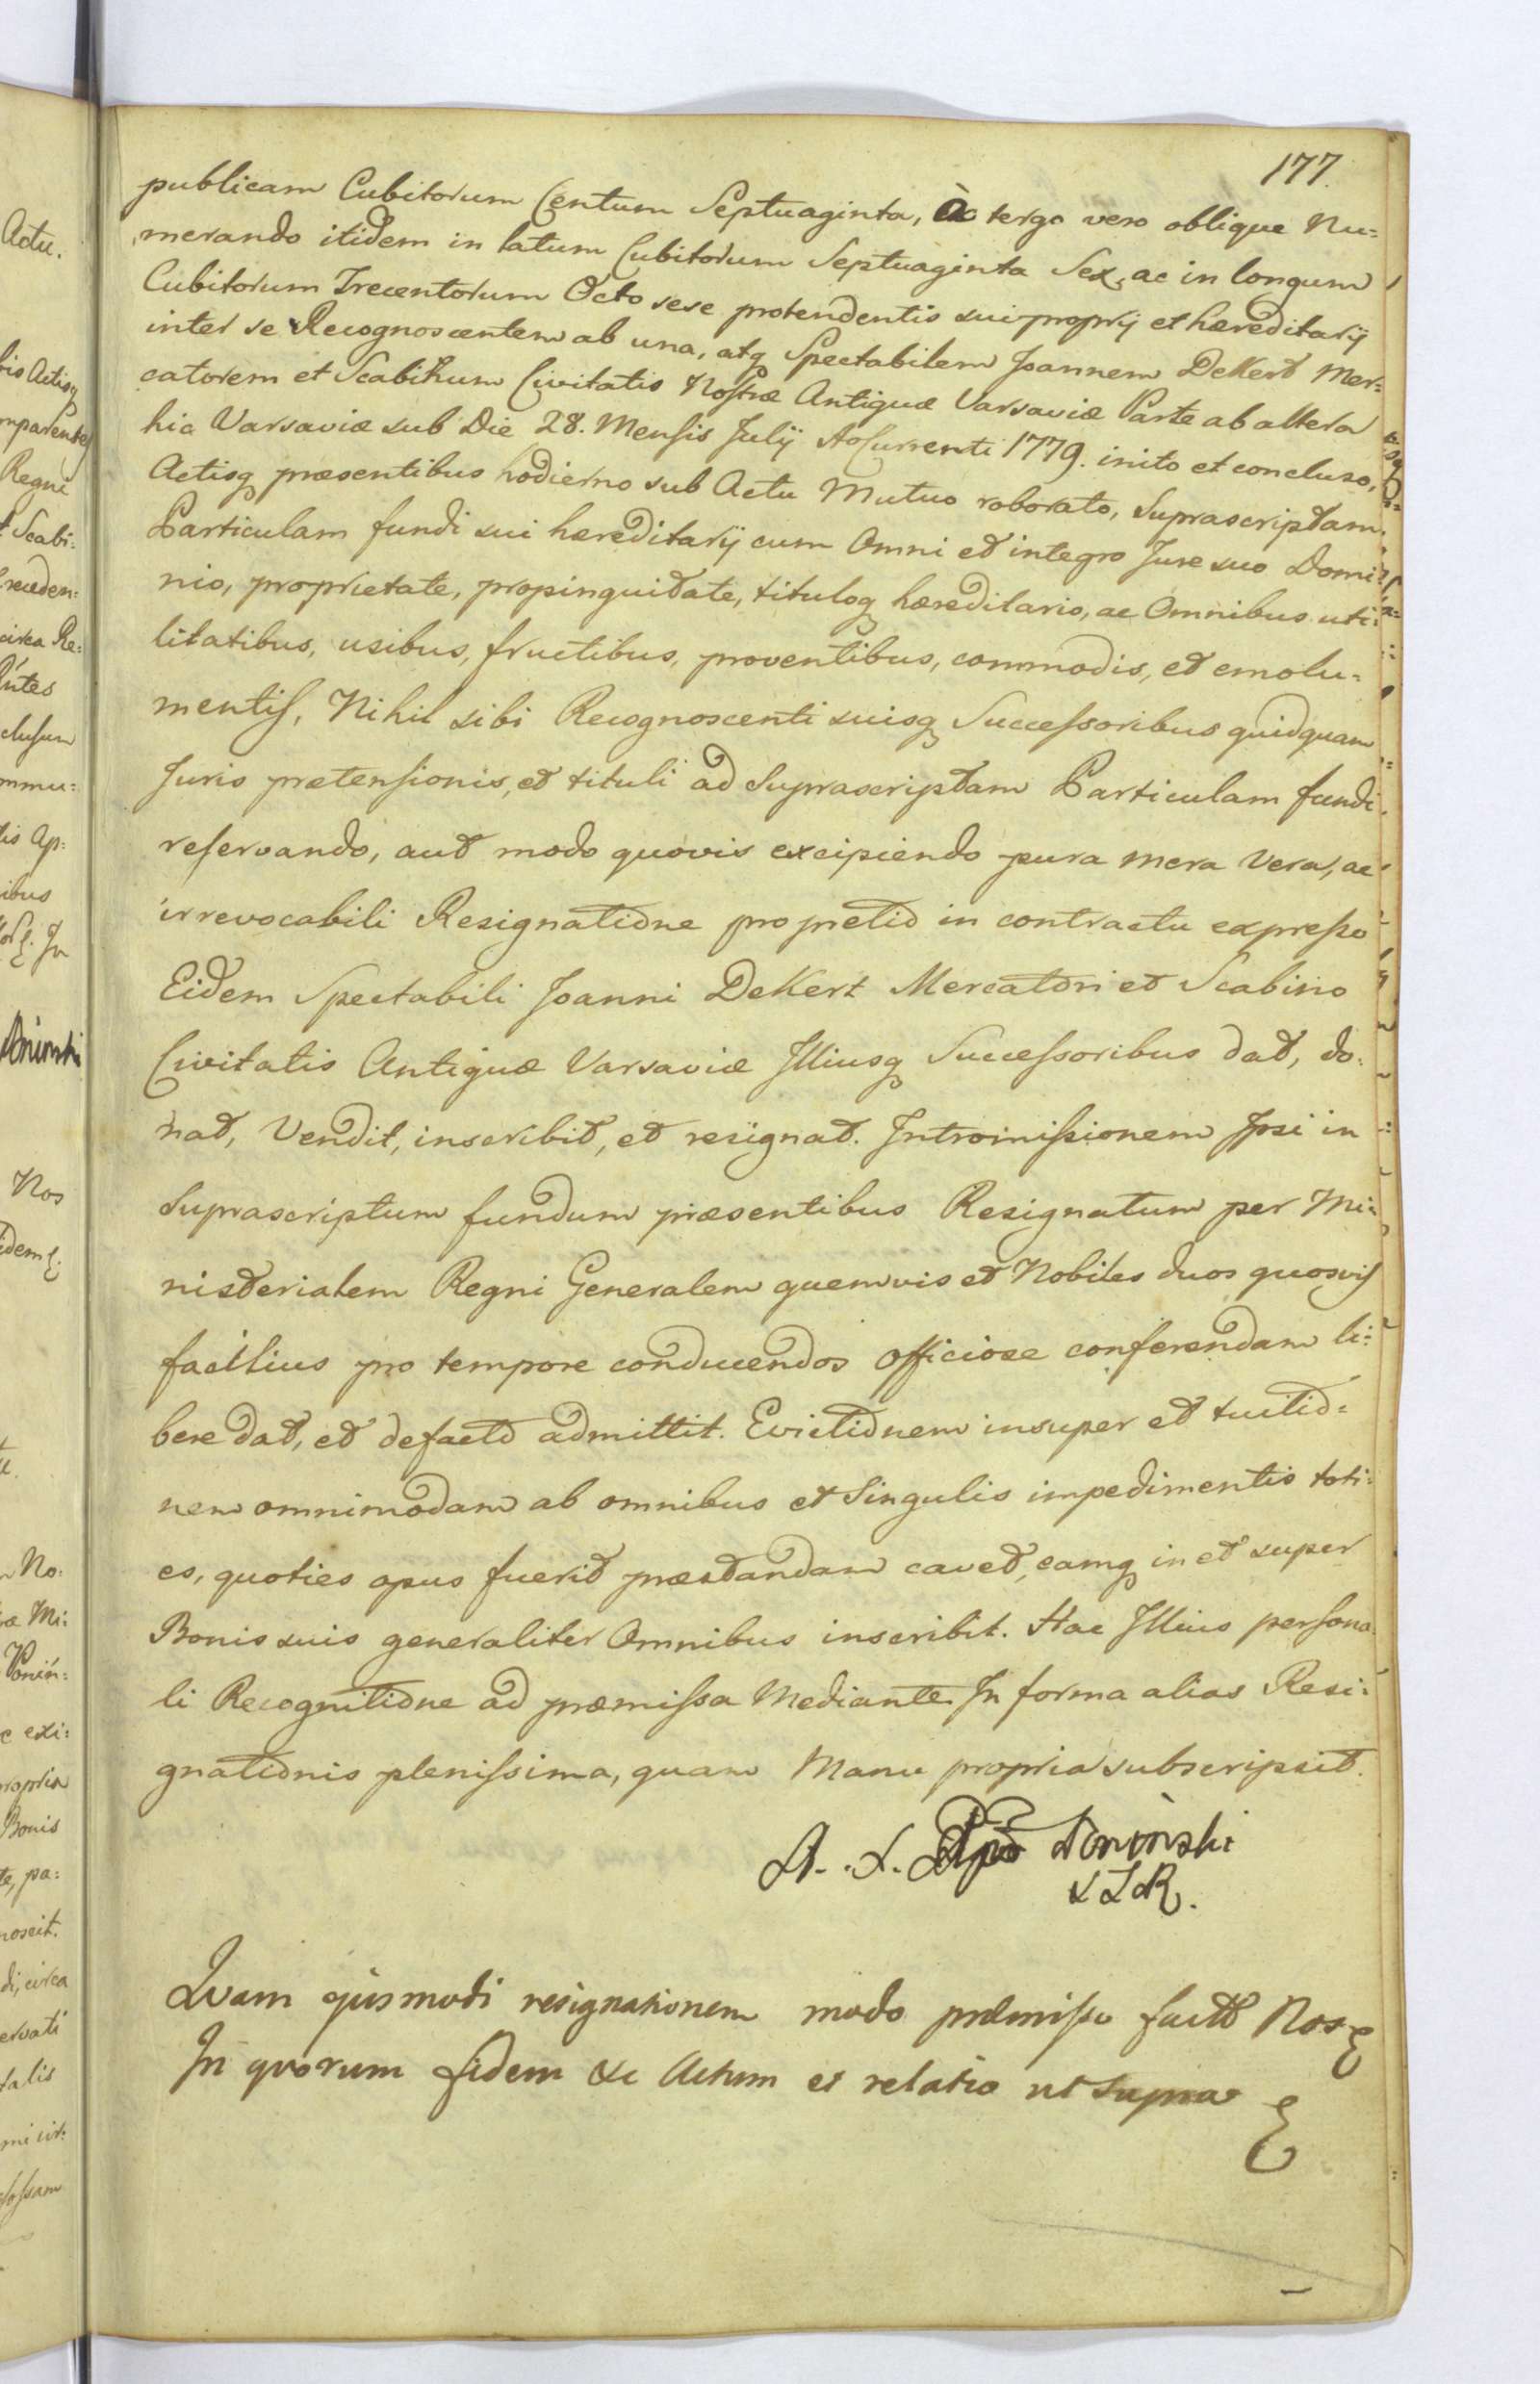 177.
publicam Cubitorum Centum Septuaginta, à tergo vero oblique Nu=
merando itidem in latum Cubitorum Septuaginta Sex, ac in longum
Cubitorum Trecentorum Octo sese protendentis sui proprij et hæreditarij
inter se Recognoscentem ab una, atq Spectabilem Joannem DeKert Mer=
catorem et Scabinum Civitatis Nostræ Antiquæ Varsaviæ Parte ab altera
hic Varsaviæ sub Die 28. Mensis Julij Ao Currenti 1779. inito et concluso,
Actisq præsentibus hodierno sub Actu Mutuo roborato, Suprascriptam
Particulam fundi sui hæreditarij cum Omni et integro Jure suo Domi=
nio, proprietate, propinquitate, tituloq hæreditario, ac Omnibus uti=
litatibus, usibus, fructibus, proventibus, commodis, et emolu=
mentis, Nihil sibi Recognoscenti suisq Successoribus quidquam
Juris prætensionis, et tituli ad Suprascriptam Particulam fundi
reservando, aut modo quovis excipiendo pura mera vera, ac
irrevocabili Resignatione pro pretio in contractu expresso
Eidem Spectabili Joanni DeKert Mercatori et Scabino
Civitatis Antiquæ Varsaviæ Illiusq Successoribus dat, do=
nat, Vendit, inscribit, et resignat. Intromissionem Ipsi in
Suprascriptum fundum præsentibus Resignatum per Mi=
nisterialem Regni Generalem quemvis et Nobiles duos quosvis
facilius pro tempore conducendos officiose conferendam li=
bere dat, et defacto admittit. Evictionem insuper et tuitio=
nem omnimodam ab omnibus et Singulis impedimentis toti=
es, quoties opus fuerit præstandam cavet, eamq in et super
Bonis suis generaliter Omnibus inscribit. Hac Illius persona
li Recognitione ad præmissa Mediante. In forma alias Resi=
gnationis plenissima, quam Manu propria subscripsit.
A. X. Poninski
Quam ejusmodi resignationem modo præmisso factâ Nos
In quorum fidem &c Actum et relatio ut supra